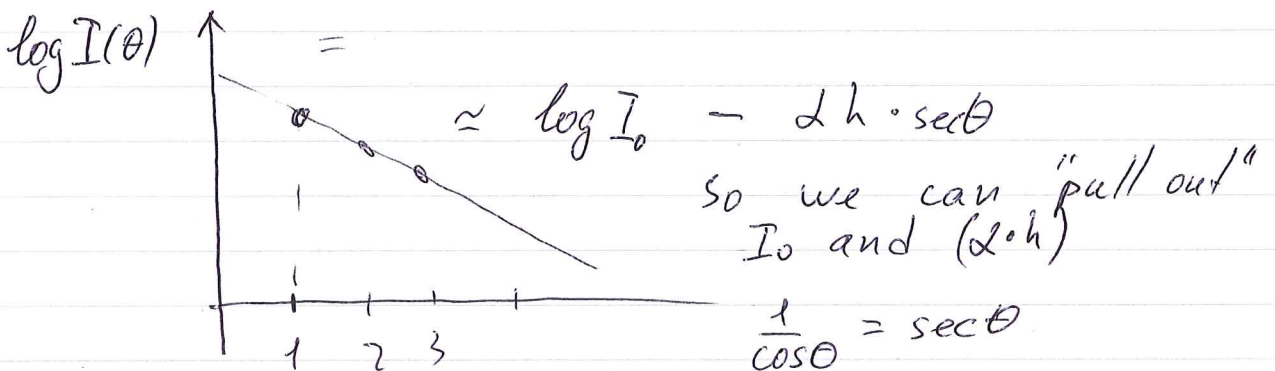 log I(θ) =
≃ log I₀ - αh · secθ
so we can "pull out"
I₀ and (α·h)
1/cosθ = secθ
1 2 3